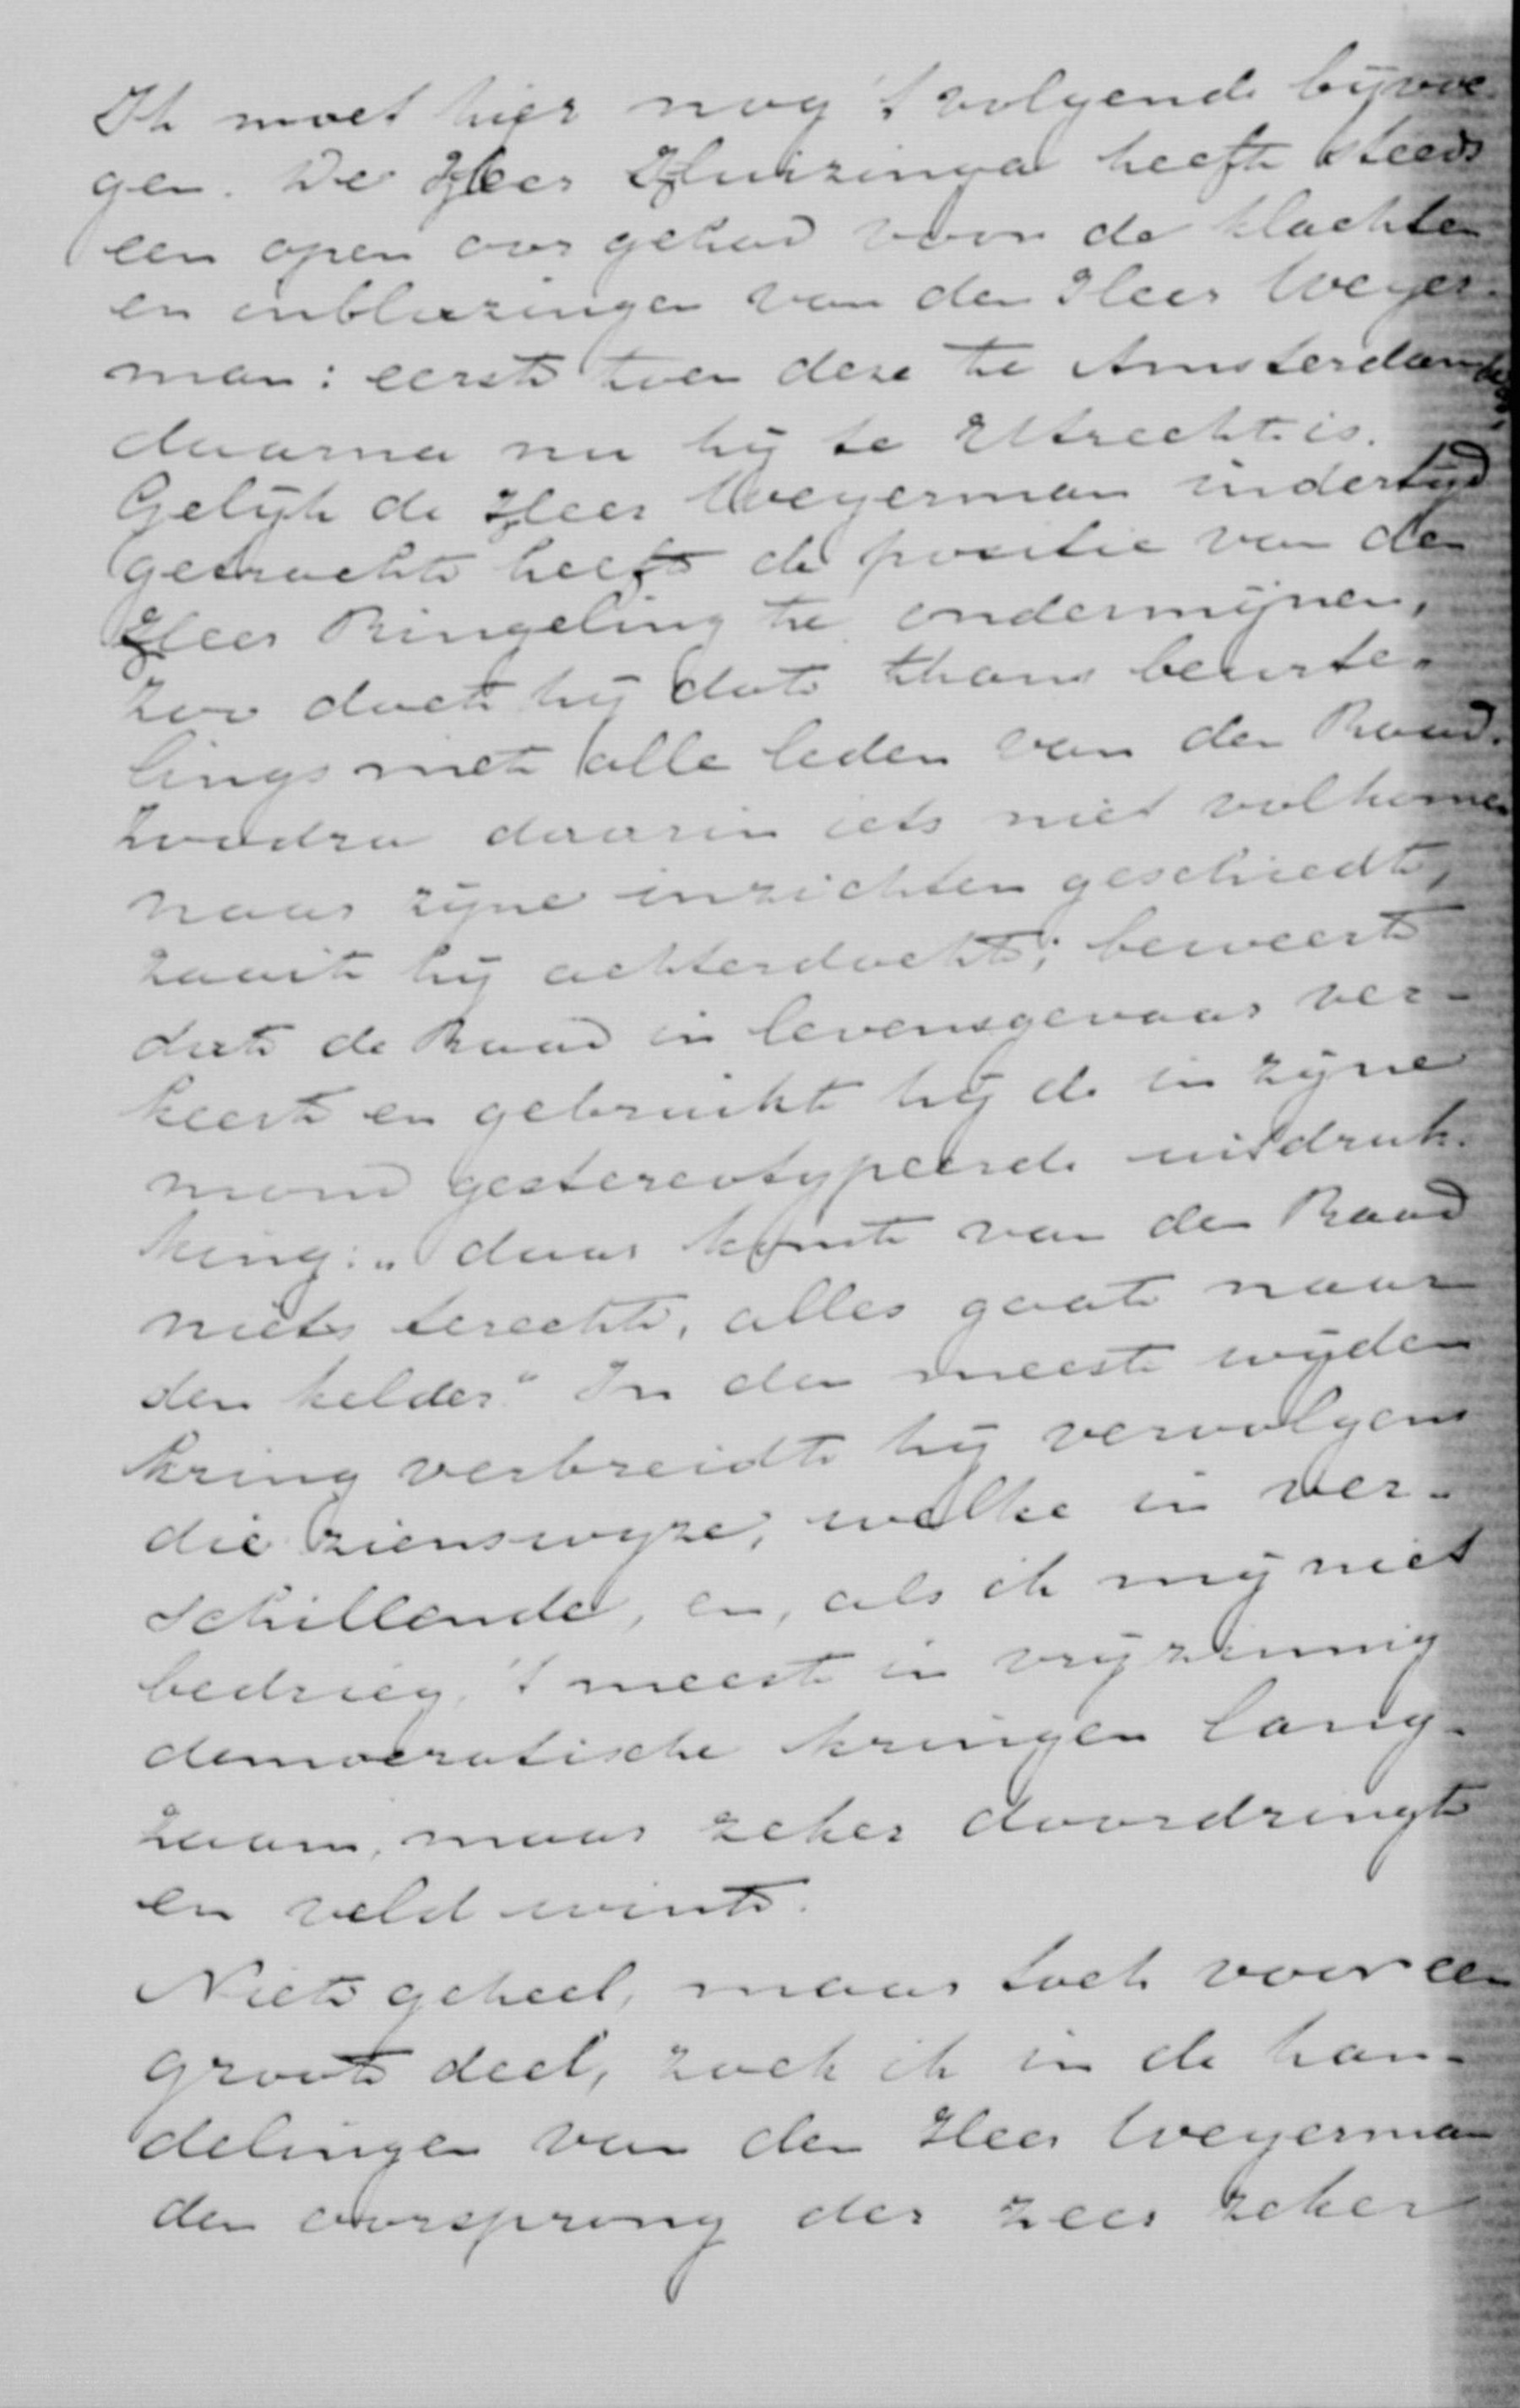 Ik moet hier nog 't volgende bijvoe-
gen. De Heer Huizinga heeft steeds
een open oor gehad voor de klachten
en inblazingen van den Heer Weyer-
man: eerst toen deze te Amsterdam
daarna nu hij te Utrecht is.
Gelijk de Heer Weyerman indertijd
getracht heeft de positie van den
Heer Ringeling te ondermijnen,
zoo doet hij dat thans beurte-
lings met alle leden van den Raad.
Zoodra daarin iets niet volkomen
naar zijne inzichten geschiedt,
zaait hij achterdocht; beweert
dat de Raad in levensgevaar ver-
keert en gebruikt hij de in zijne
mond gestereotypeerde uitdruk-
king: „daar komt van den Raad
niets terecht, alles gaat naar
den kelder." In den meest wijden
kring verbreidt hij vervolgens
die zienswijze, welke in ver-
schillende, en, als ik mij niet
bedrieg, 't meest in vrijzinnig
democratische kringen lang-
zaam, maar zeker doordringt
en veld wint.
Niet geheel, maar toch voor een
groot deel, zoek ik in de han-
delingen van den Heer Weyerman
den oorsprong der zeer zeker